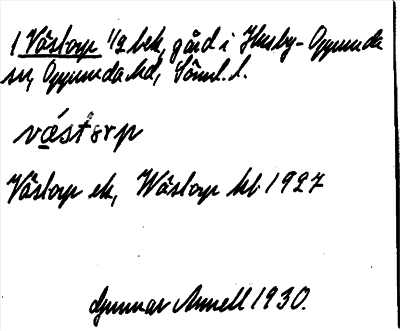 1 Västorp 1/2 bek, gård i Husby-Oppunda
sn, Oppunda hd, Söml. l.
vástorp
Västorp ek, Wästorp kb 1927
Gunnar Annell 1930.